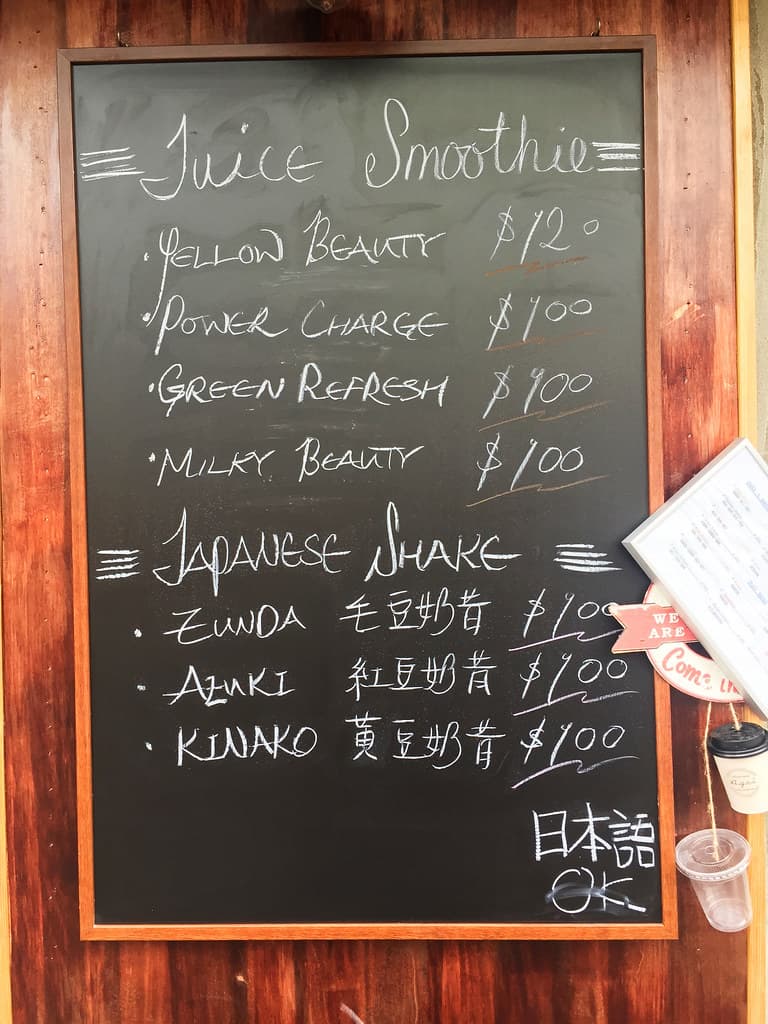 Juice Smoothie
· YELLOW BEAUTY $120
· POWER CHARGE $100
· GREEN REFRESH $100
· MILKY BEAUTY $100
JAPANESE SHAKE
· ZUNDA 毛豆奶昔 $100
· AZUKI 紅豆奶昔 $100
· KINAKO 黃豆奶昔 $100
WE
ARE
Come in
日本語
OK